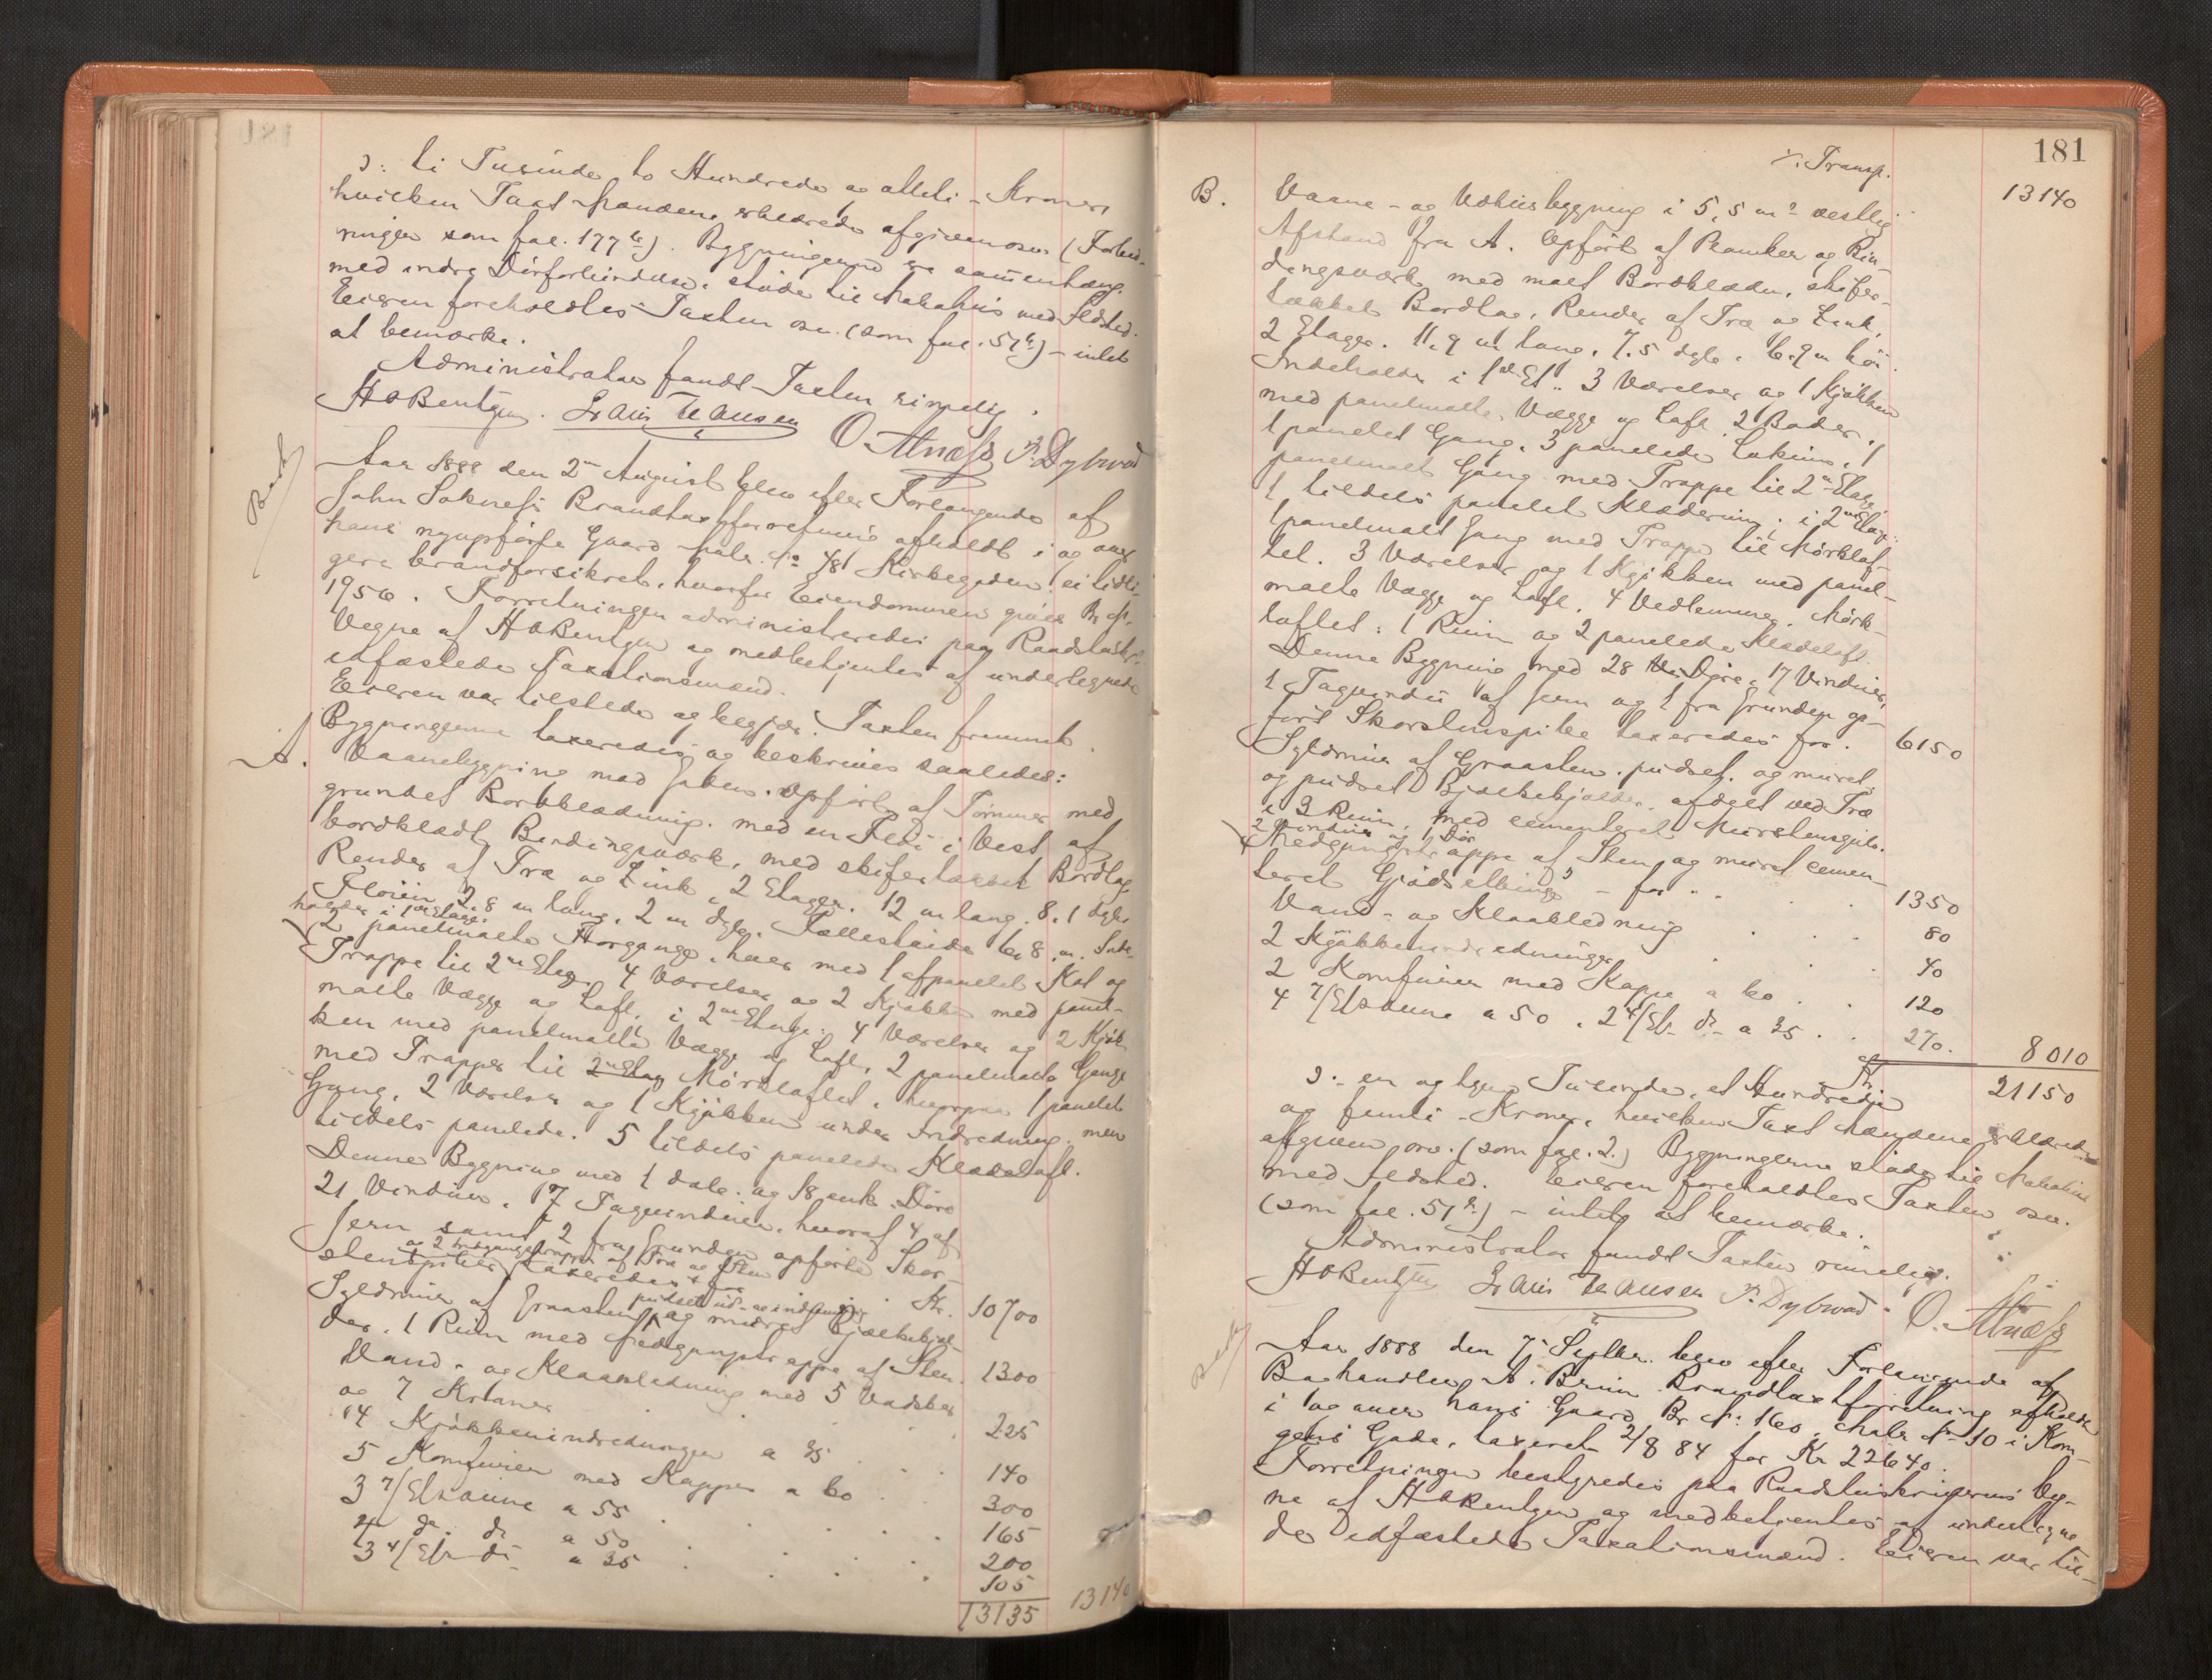 ɔ: ti Tusinde to Hundrede og otteti - Kroner
hvilken Taxt Mændene erklærede afgiven osv. (Forbed-
ringer som fol. 177 b). Bygningerne er sammenhæng.
med indre Dørforbindelse, støder til Nabohus med Ildsted.
Eieren foreholdtes Taxten osv. (som fol. 51 b) - intet
at bemærke.
Administrator fandt Taxten rimelig.
HOBentzen. Lauis Hansen O. Alnæss P. Dybwad
Aar 1888 den 2den August blev efter Forlangende af
John Saknes's Brandtaxtforretning afholdt i og over
hans nyopførte Gaard Matr. No 48 Kirkegaden, ei tidli-
gere brandforsikret, hvorfor Eiendommen gives Br. No.
195 b. Forretningen administreredes paa Raadstuskr.
Vegne af HOBentzen og medbetjentes af undertegnede
edfæstede Taxationsmænd.
Eieren var tilstede og begjær. Taxten fremmet.
Bygningerne taxeredes og beskrives saaledes:
A. Vaanebygning mod Gaden. Opført af Tømmer med
grundet Bordklædning. med en Fløi i Vest af
bordklædt Bindingsværk, med skifertækket Bordtag
Render af Træ og Zink, 2 Etager. 12 m lang. 8,1 dyb.
Fløien 2,8 m lang, 2 m dyb. Fælleshøide 6,8 m. Inde-
holder i 1ste Etage:
2 panelmalte Forgange, hver med 1 afpanelet Kot og
Trappe til 2den Etage, 4 Værelser og 2 Kjøkken med panel-
malte Vægge og Loft, i 2den Etage: 4 Værelser og 2 Kjøk-
ken med panelmalte Vægge og Loft, 2 panelmalte Gange
med Trapper til 2den Etag Mørkloftet, hvorpaa 1 panelet
Gang, 2 Værelser og 1 Kjøkken under Indredning, men
tildels panelede. 5 tildels panelede Klædeloft.
Denne Bygning med 1 dob. og 18 enk. Døre
21 Vinduer. 7 Tagvinduer, hvoraf 4 af
Jern samt 2 fra Grunden opførte Skor-
og 2 Indgangstrapper af Træ og Sten
stenspiber taxeredes for Kr. 10700
pudset ud- og indvendig
Syldmur af Graasten og muret Bjælkekjæl-
der, 1 Rum med Nedgangstrappe af Sten. 1300
Vand- og Kloakledning med 5 Vadsker
og 7 Kraner 225
4 Kjøkkenindredninger a 35 140
5 Komfurer med Kapper a 60 300
3 7/Etsovne a 55 165
4 do. do a 50 200
3 4/Etr do a 35 105
13135 13140
181
./. Transp. 13140
B. Vaane- og Udhusbygning i 5,5 m vestlig
Afstand fra A. Opført af Planker og Bin-
dingsværk med malt Bordklædn. skifer-
tækket Bordtag, Render af Træ og Zink,
2 Etager. 11,9 m lang, 7,5 dyb, 6,9 m høi.
Indeholder i 1ste Et.: 3 Værelser og 1 Kjøkken
med panelmalte Vægge og Loft. 2 Boder,
1 panelet Gang, 3 panelede Lokum, 1
panelmalt Gang med Trappe til 2den Etage,
1 tildels panelet Klæderum; i 2den Etage:
1 panelmalt Gang med Trappe til Mørklof-
tet. 3 Værelser og 1 Kjøkken med panel-
malte Vægge og Loft, 4 Vedlemmer. Mørk-
loftet: 1 Rum og 2 panelede Klædeloft.
Denne Bygning med 28 Døre, 17 Vinduer,
1 Tagvindu af Jern og 1 fra Grunden op-
ført Skorstenspibe taxeredes for. 6150
Syldmur af Graasten, pudset, og muret
og pudset Bjælkekjælder, afdelt ved Træ
i 3 Rum, med cementeret Murstensgulv.
2 Vinduer og 1 Dør
Nedgangstrappe af Sten, og muret cemen-
teret Gjødselbinge - for 1350
Vand- og Kloakledning 80
2 Kjøkkenindredninger 40
2 Komfurer med Kappe a 60 120
4 7/Etsovne a 50, 2 4/Etr do a 35 270. 8010
Kr. 21150
ɔ: en og tyve Tusinde, et Hundrede
og femti - Kroner, hvilken Taxt Mændene erklærede
afgiven osv. (som fol. 2.) Bygningerne støder til Nabohus
med Ildsted. Eieren foreholdtes Taxten osv.
(som fol. 51 b) - intet at bemærke.
Administrator fandt Taxten rimelig.
HOBentzen Lauis Hansen P. Dybwad. O. Alnæss
Aar 1888 den 7de Septbr. blev efter Forlangende af
Boghandler A. Brun Brandtaxtforretning afholdt
i og over hans Gaard Br. No. 160, Matr. No 10 i Kon-
gens Gade, taxeret 2/8 84 for Kr 22640.
Forretningen bestyredes paa Raadstuskriverens Veg-
ne af HOBentzen og medbetjentes af undertegne-
de edfæstede Taxationsmænd. Eieren var til-